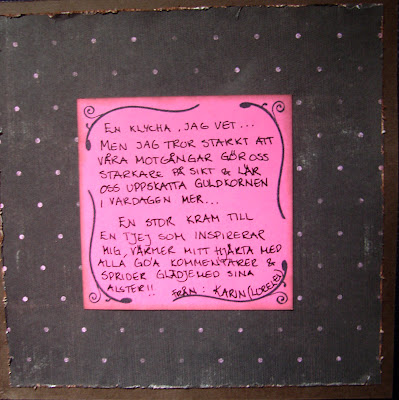 EN KLYCHA, JAG VET...
MEN JAG TROR STARKT ATT
VÅRA MOTGÅNGAR GÖR OSS
STARKARE PÅ SIKT & LÄR
OSS UPPSKATTA GULDKORNEN
I VARDAGEN MER...
EN STOR KRAM TILL
EN TJEJ SOM INSPIRERAR
MIG, VÄRMER MITT HJÄRTA MED
ALLA GO'A KOMMENTARER &
SPRIDER GLÄDJE MED SINA
ALSTER!!
FRÅN: KARIN (LORELEI)